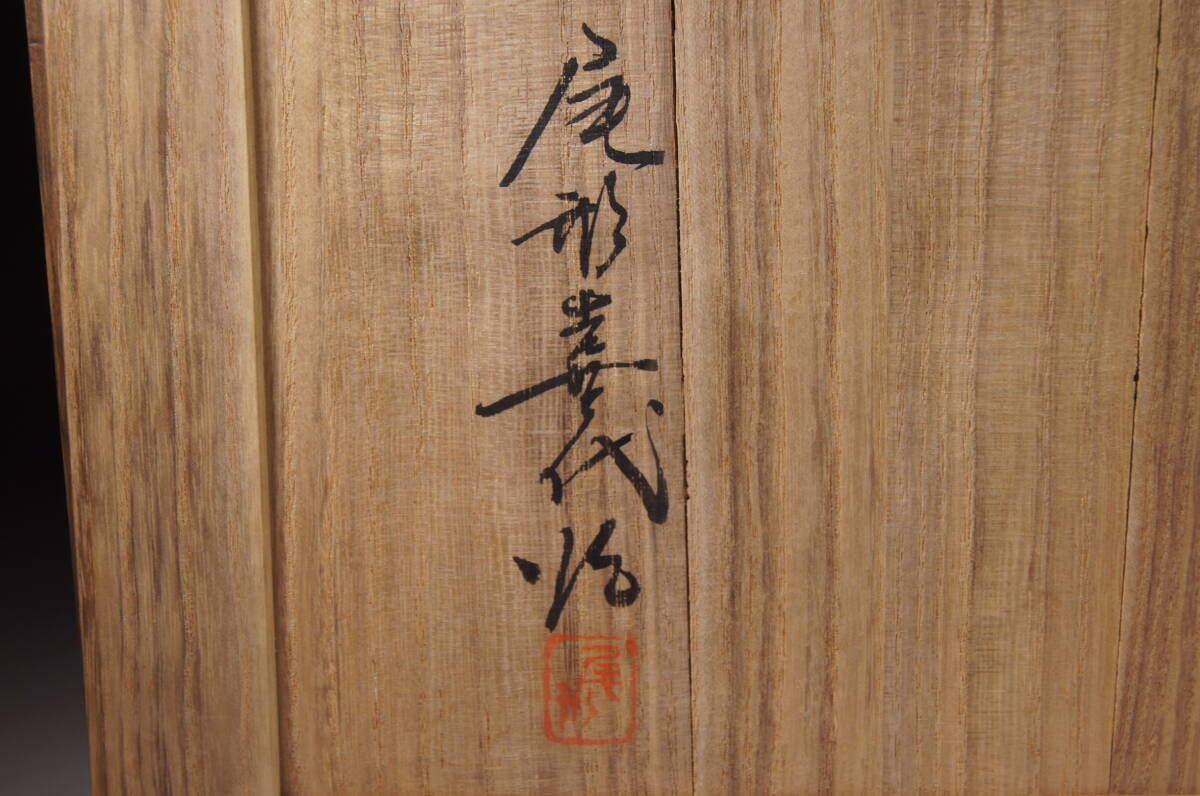 尾形喜代治
尾形